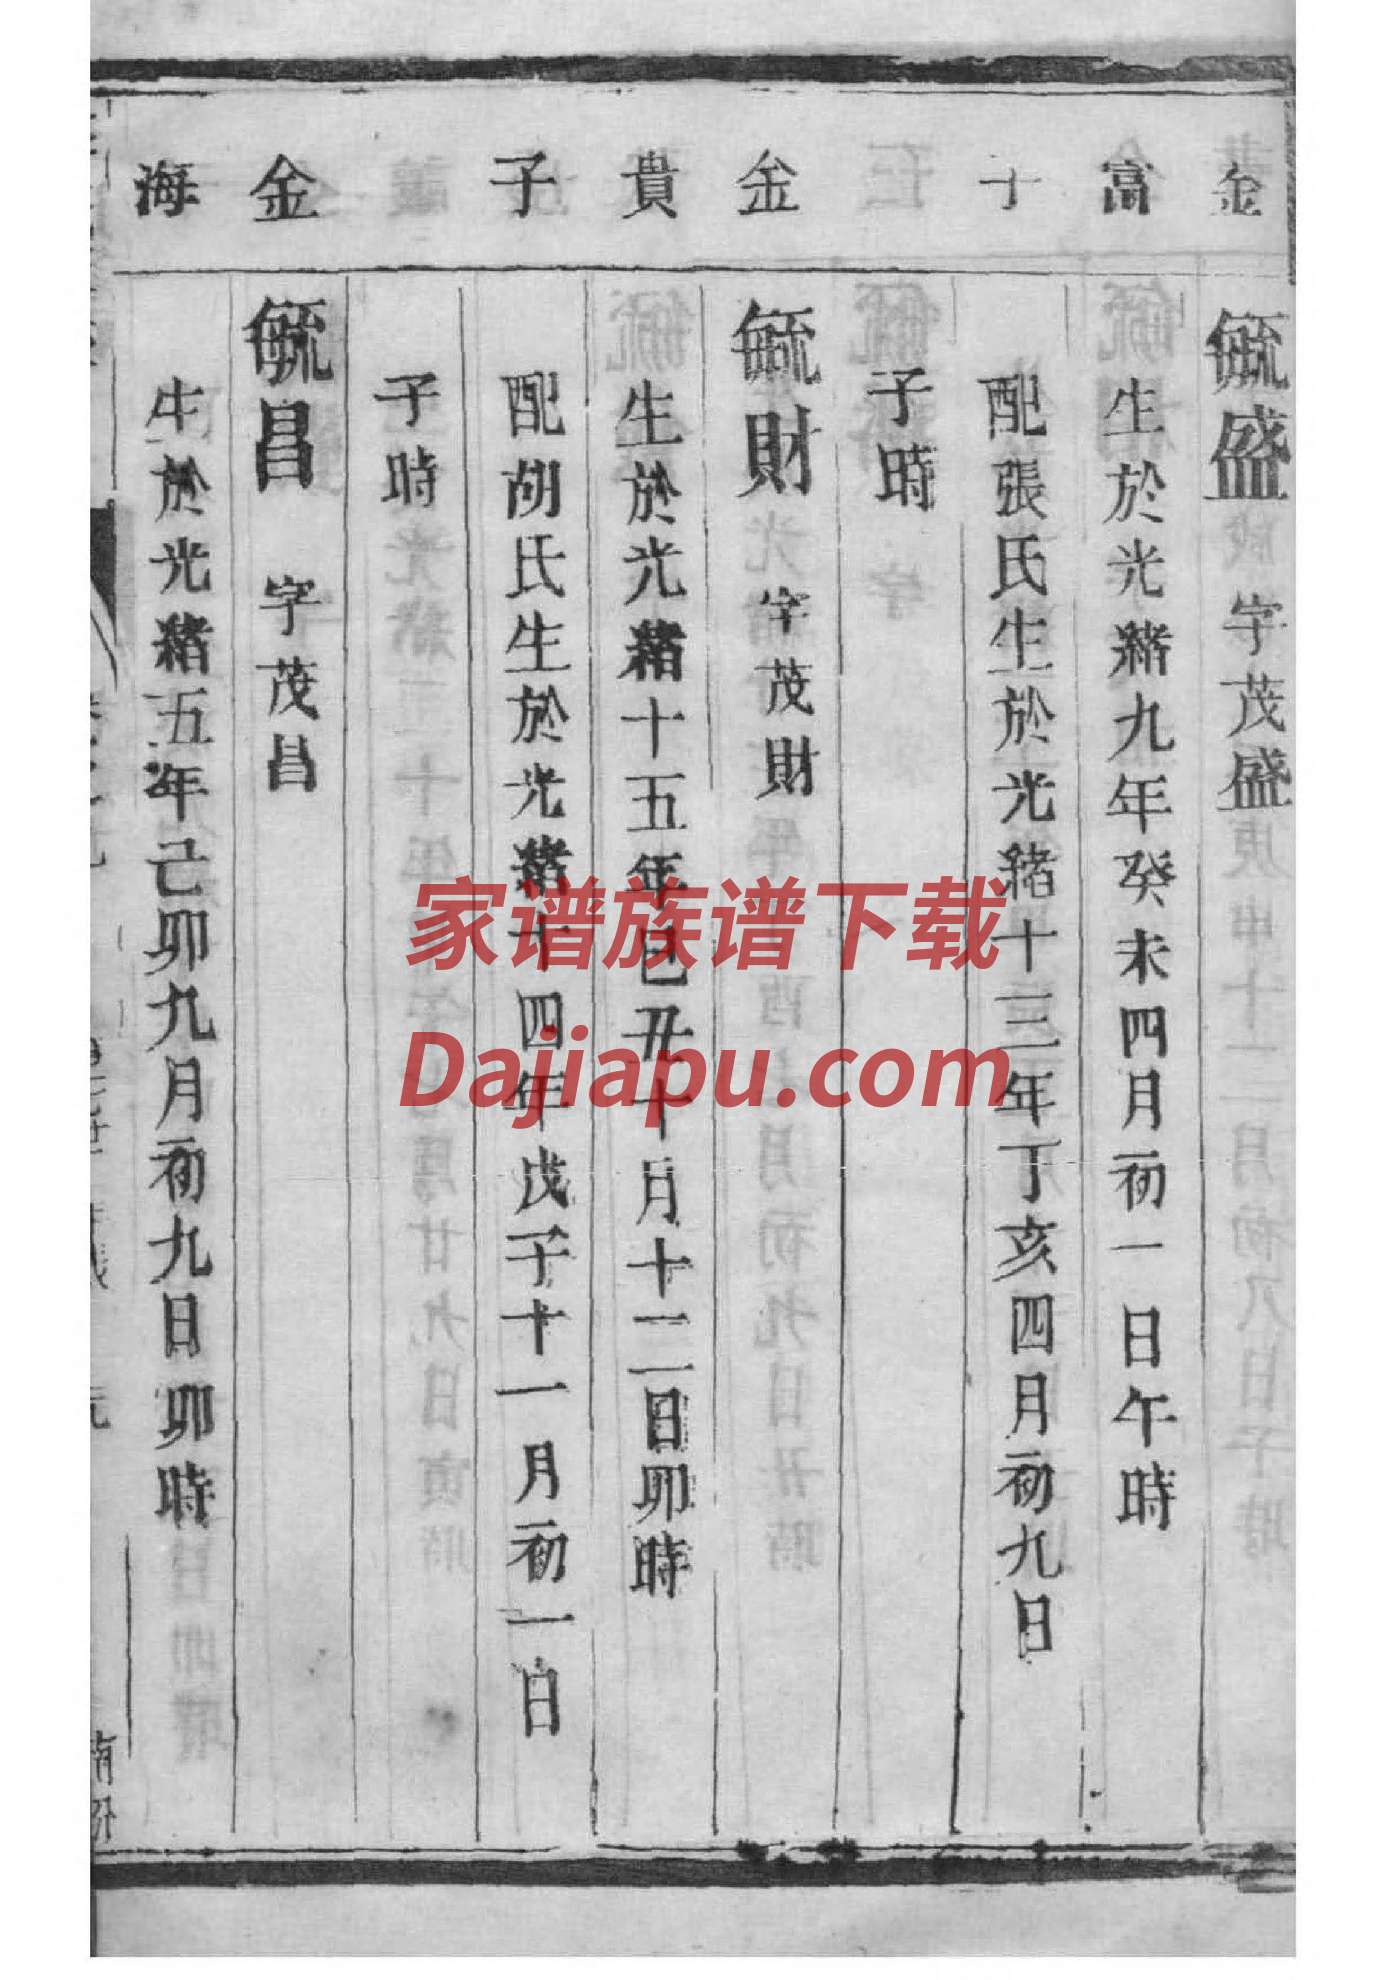 金
毓盛 字茂盛
富
生於光緒九年癸未四月初一日午時
子
配張氏生於光緒十三年丁亥四月初九日
子時
金
毓財 字茂財
貴
生於光緒十五年己丑十月十二日卯時
子
配胡氏生於光緒十四年戊子十一月初一日
子時
金
毓昌 字茂昌
海
生於光緒五年己卯九月初九日卯時
家谱族谱下载
Dajiapu.com